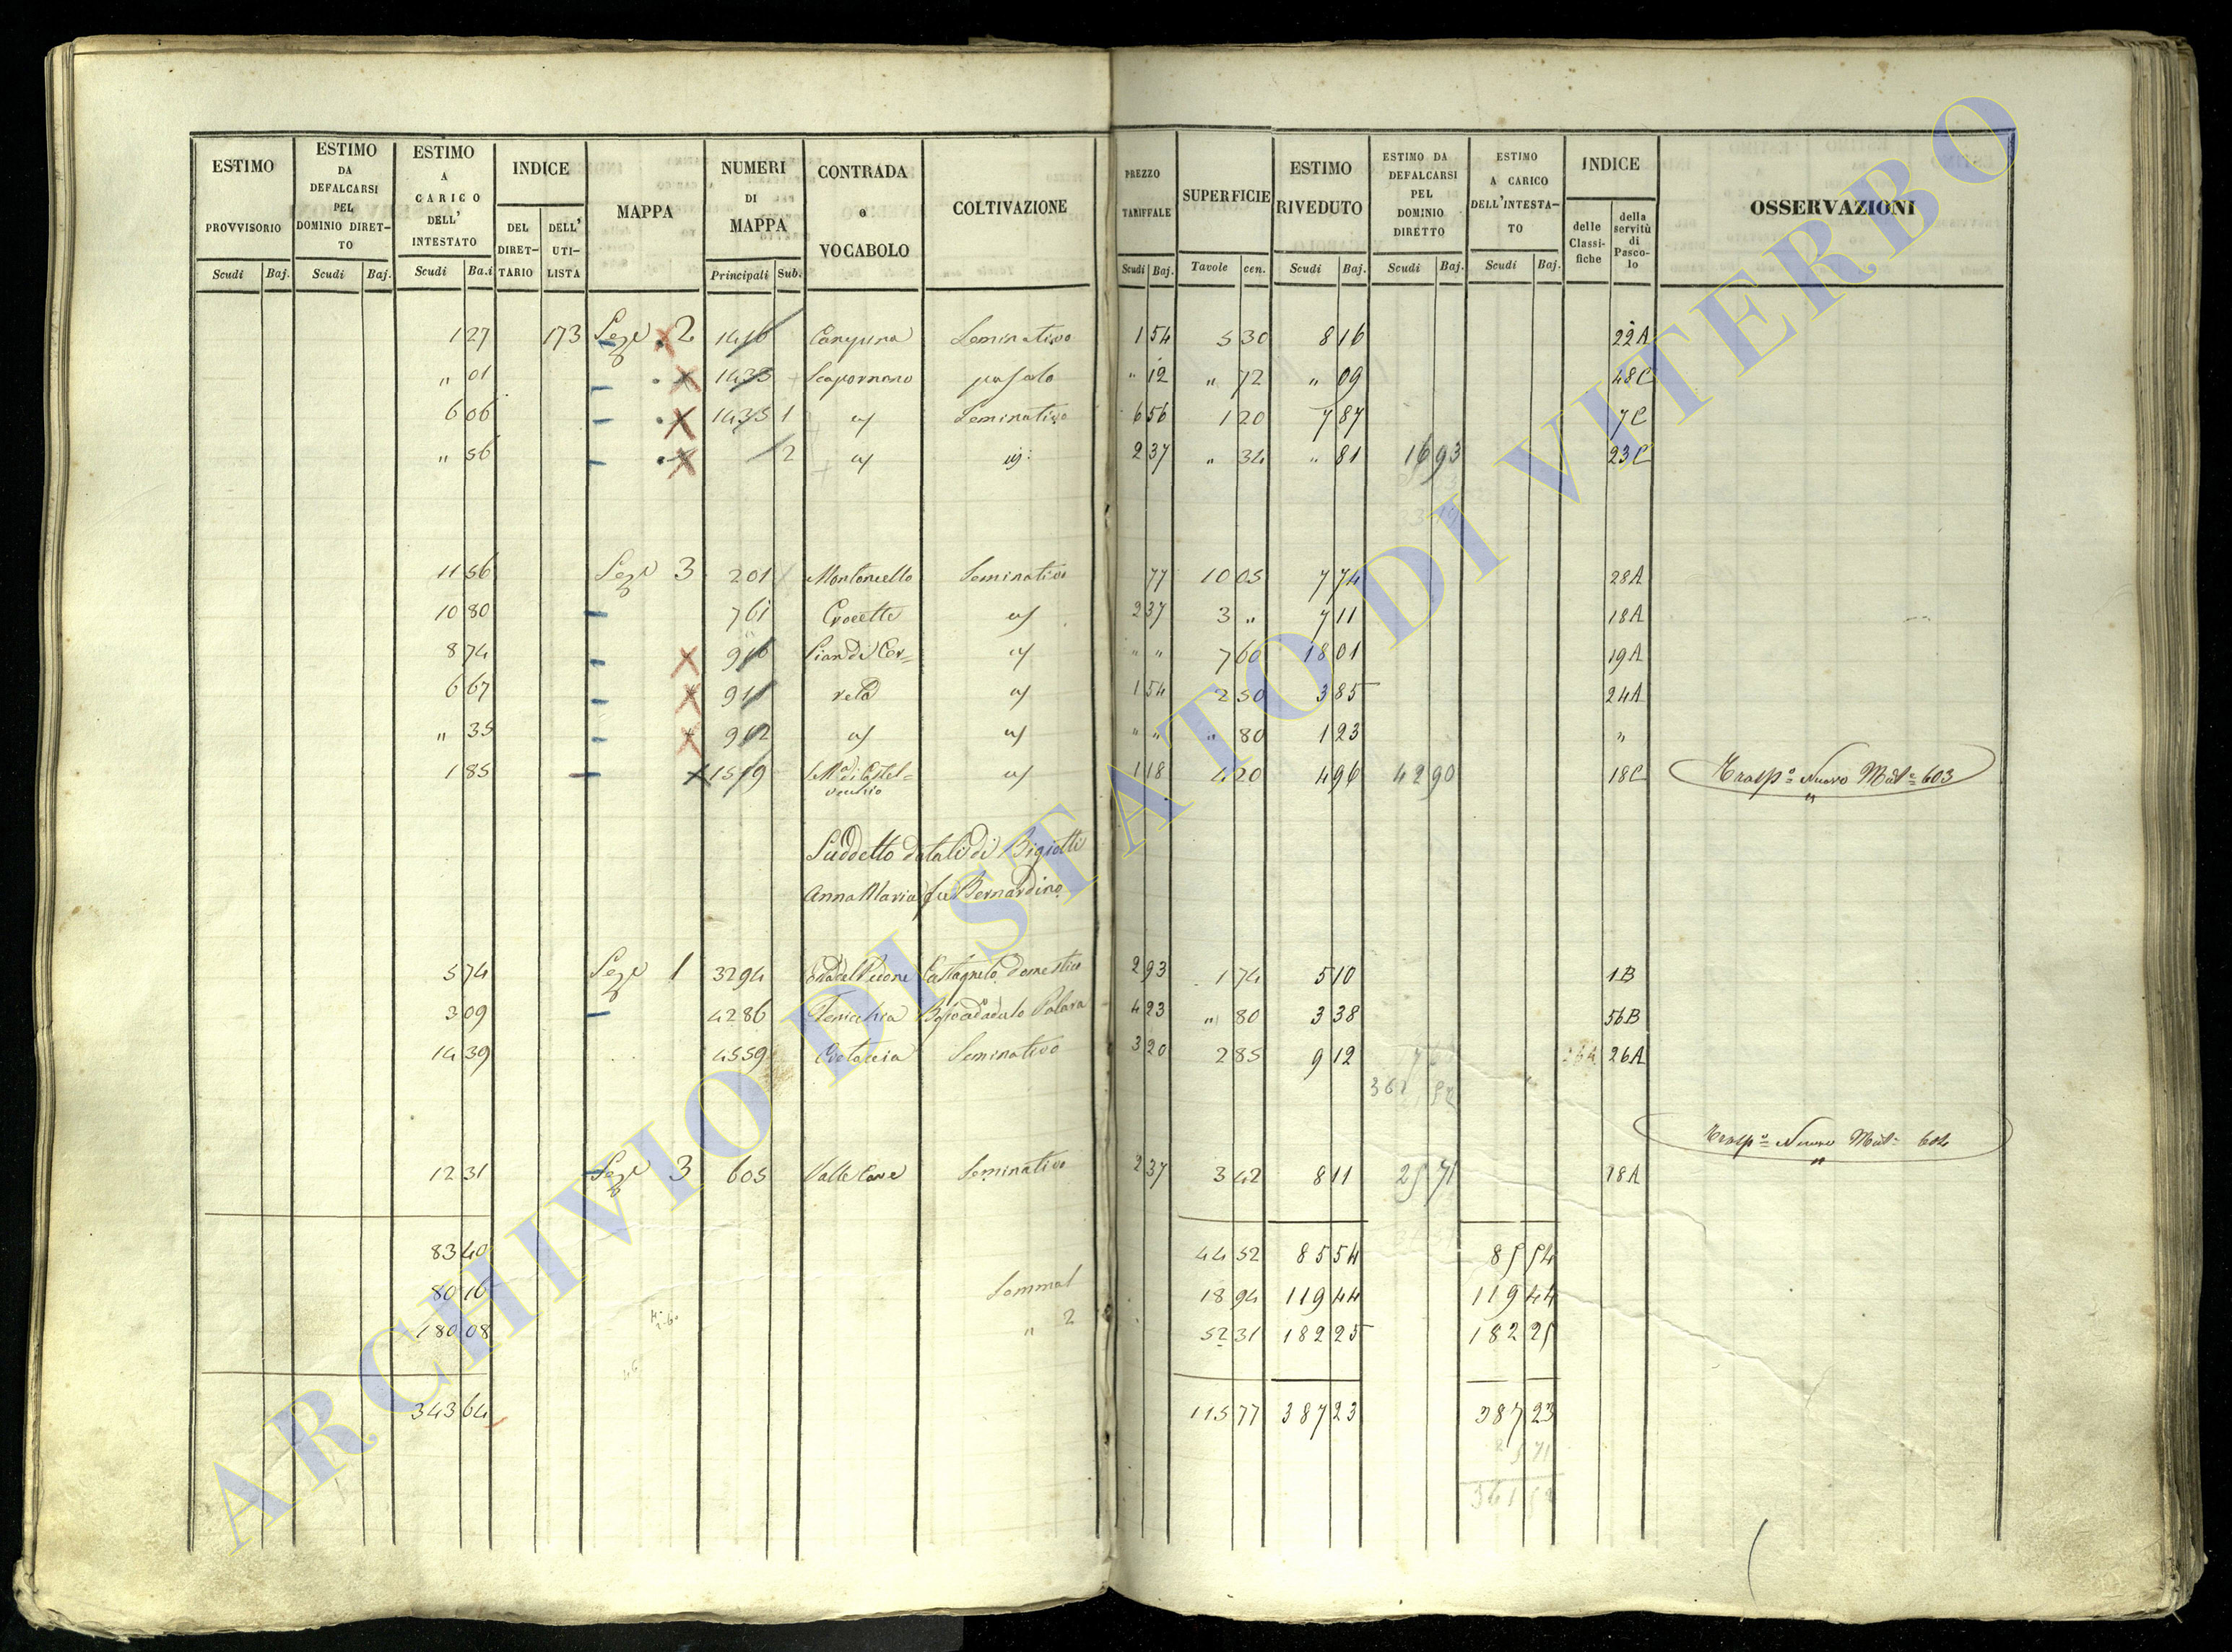 ESTIMO PROVVISORIO Scudi Baj.
ESTIMO DA DEFALCARSI PEL DOMINIO DIRET-TO Scudi Baj.
ESTIMO A CARICO DELL' INTESTATO Scudi Ba.i
INDICE DEL DIRET-TARIO DELL' UTI-LISTA
MAPPA
NUMERI DI MAPPA Principali Sub.
CONTRADA o VOCABOLO
COLTIVAZIONE
PREZZO TARIFFALE Scudi Baj.
SUPERFICIE Tavole cen.
ESTIMO RIVEDUTO Scudi Baj.
ESTIMO DA DEFALCARSI PEL DOMINIO DIRETTO Scudi Baj.
ESTIMO A CARICO DELL'INTESTA-TO Scudi Baj.
INDICE delle Classi-fiche della servitù di Pasco-lo
OSSERVAZIONI
1 27 173 2 1416 Seminativo 1 54 5 30 8 16 22A
" 01 1433 " 12 " 72 " 09 48C
6 06 1435 1 Seminativo 6 56 1 20 7 87 7C
" 56 2 2 37 " 34 " 81 16 93 23C
11 56 3 201 Seminativo 77 10 05 7 74 28A
10 80 761 Crocette 2 37 3 " 7 11 18A
8 74 910 " " 7 60 18 01 19A
6 67 911 1 54 2 50 3 85 24A
" 35 912 " " " 80 1 23 "
1 85 1519 1 18 4 20 4 96 42 90 18C Nuovo 603
Suddetto dotali di Bigiotti
Anna Maria fu Bernardino
5 74 1 3294 Castagneto domestico 2 93 1 74 5 10 1B
3 09 4286 4 23 " 80 3 38 56B
14 39 4559 Seminativo 3 20 2 85 9 12 26A
Nuovo 604
12 31 3 605 Valle Cave Seminativo 2 37 3 42 8 11 25 71 18A
83 40 44 52 85 54 85 54
80 16 18 94 119 44 119 44
180 08 " 2 52 31 182 25 182 25
343 64 115 77 387 23 387 23
ARCHIVIO DI STATO DI VITERBO